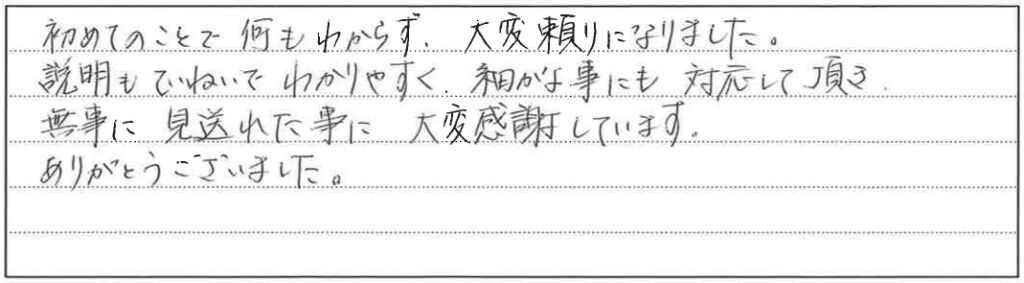 初めてのことで何もわからず、大変頼りになりました。
説明もていねいでわかりやすく、細かな事にも対応して頂き、
無事に見送れた事に大変感謝しています。
ありがとうございました。